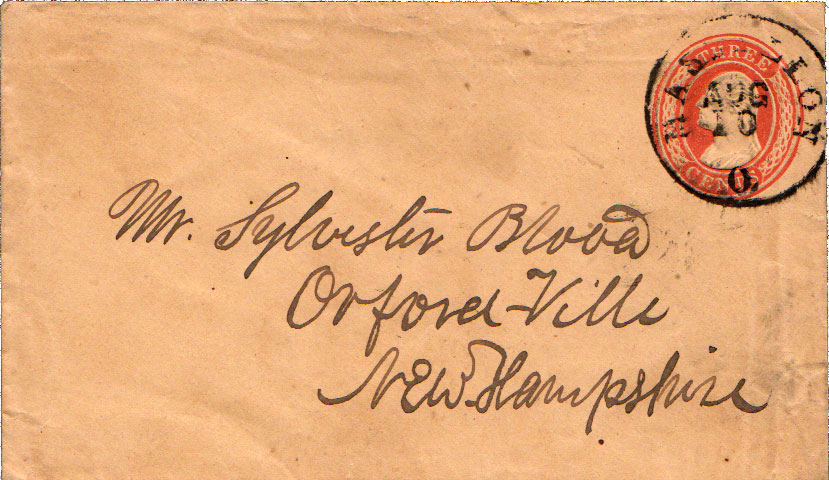 THREE
CENTS
MASSILLON
AUG
10
O.
Mr. Sylvester Blood
Orford-Ville
New. Hampshire